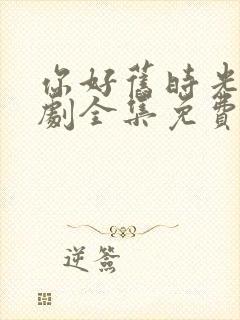 你好舊時光
劇全集免費
逆簽